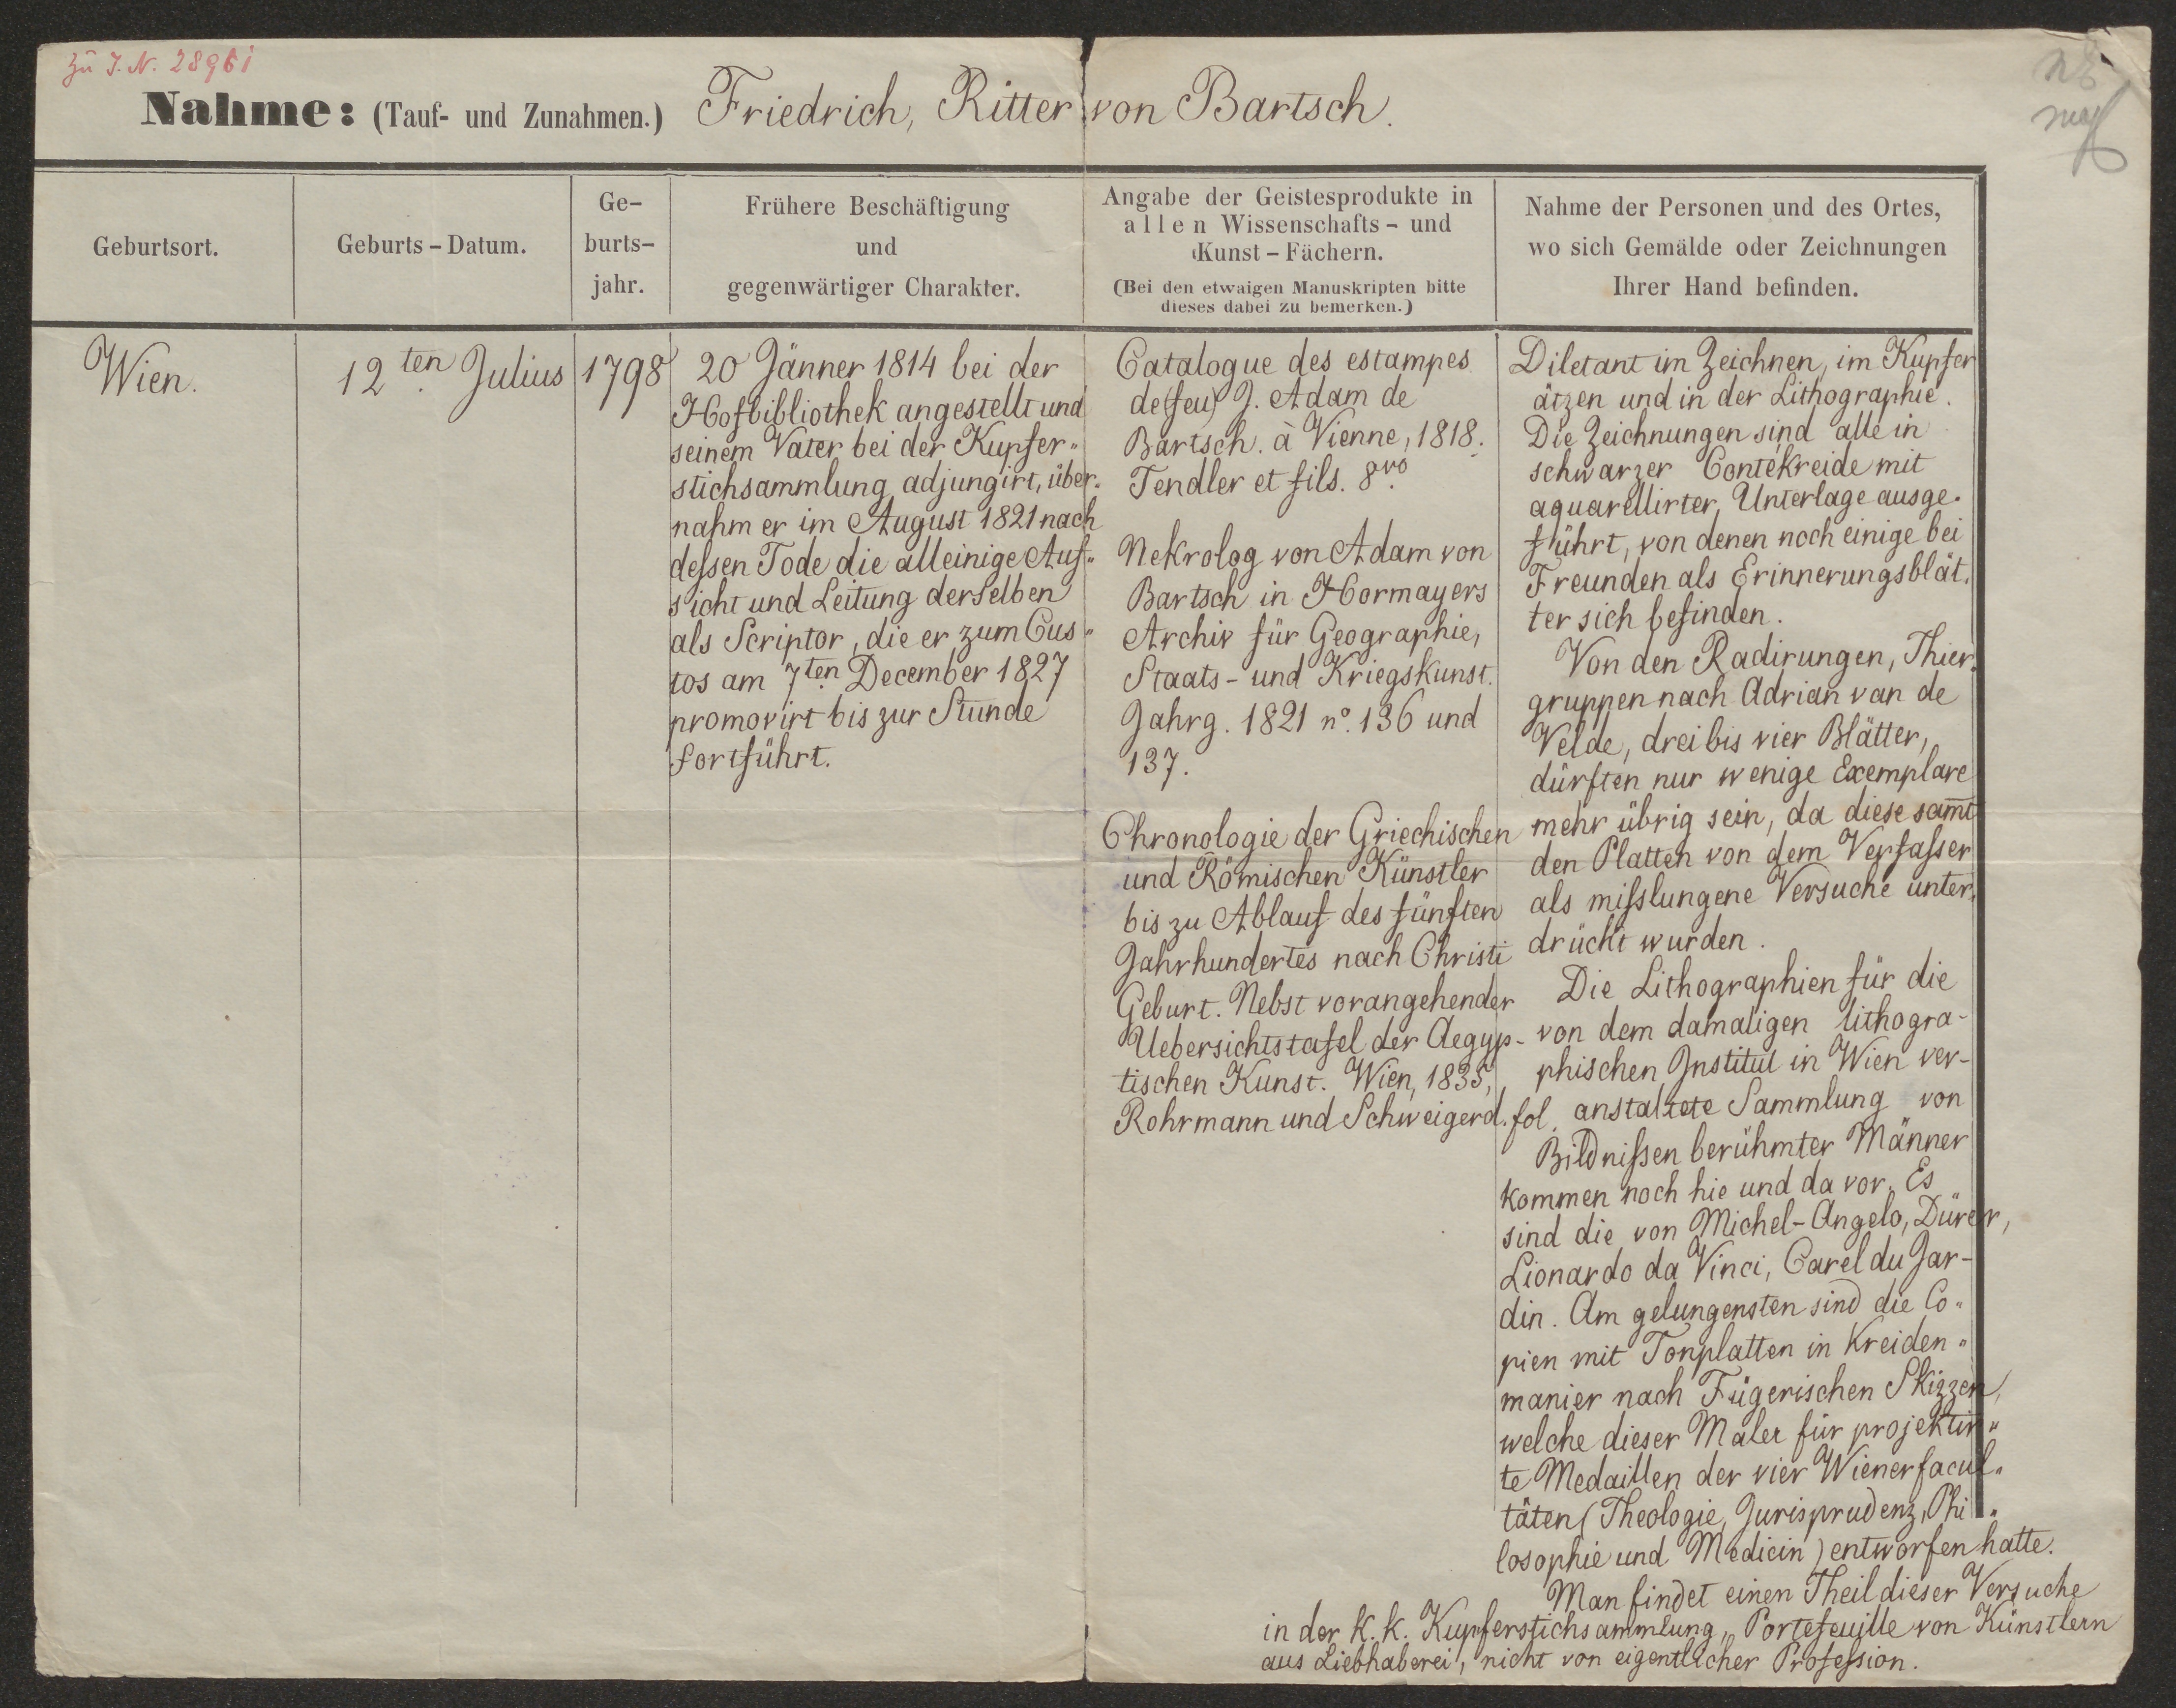 Zu J. N. 28961
Nahme: (Tauf- und Zunahmen.) Friedrich, Ritter von Bartsch.
Geburtsort.
Geburts-Datum.
Ge-
burts-
jahr.
Frühere Beschäftigung
und
gegenwärtiger Charakter.
Angabe der Geistesprodukte in
allen Wissenschafts- und
Kunst-Fächern.
(Bei den etwaigen Manuskripten bitte
dieses dabei zu bemerken.)
Nahme der Personen und des Ortes,
wo sich Gemälde oder Zeichnungen
Ihrer Hand befinden.
Wien.
12ten Julius
1798
20 Jänner 1814 bei der
Hofbibliothek angestellt und
seinem Vater bei der Kupfer„
stichsammlung adjungirt, über„
nahm er im August 1821 nach
deſsen Tode die alleinige Auf„
sicht und Leitung derselben
als Scriptor, die er zum Cus„
tos am 7ten December 1827
promovirt bis zur Stunde
fortführt.
Catalogue des estampes
de (feu) J. Adam de
Bartsch. à Vienne, 1818.
Tendler et fils. 8vo.
Nekrolog von Adam von
Bartsch in Hormayers
Archiv für Geographie,
Staats- und Kriegskunst.
Jahrg. 1821 no. 136 und
137.
Chronologie der Griechischen
und Römischen Künstler
bis zu Ablauf des fünften
Jahrhundertes nach Christi
Geburt. Nebst vorangehender
Uebersichtstafel der Aegyp-
tischen Kunst. Wien, 1835,
Rohrmann und Schweigerd. fol.
Diletant im Zeichnen, im Kupfer
ätzen und in der Lithographie.
Die Zeichnungen sind alle in
schwarzer Contékreide mit
aquarellirter Unterlage ausge„
führt, von denen noch einige bei
Freunden als Erinnerungsblät„
ter sich befinden.
Von den Radirungen, Thier„
gruppen nach Adrian van de
Velde, drei bis vier Blätter,
dürften nur wenige Exemplare
mehr übrig sein, da diese sam̄t
den Platten von dem Verfaſser
als miſslungene Versuche unter„
drückt wurden.
Die Lithographien für die
von dem damaligen lithogra-
phischen Institut in Wien ver-
anstaltete Sammlung von
Bildniſsen berühmter Männer
kommen noch hie und da vor. Es
sind die von Michel-Angelo, Dürer,
Lionardo da Vinci, Carel du Jar-
din. Am gelungensten sind die Co„
pien mit Tonplatten in Kreiden„
manier nach Fügerischen Skizzen,
welche dieser Maler für projektir„
te Medaillen der vier Wienerfacul„
täten (Theologie, Jurisprudenz, Phi„
losophie und Medicin) entworfen hatte.
Man findet einen Theil dieser Versuche
in der k. k. Kupferstichsammlung, „Portefeuille von Künstlern
aus Liebhaberei", nicht von eigentlicher Profeſsion.